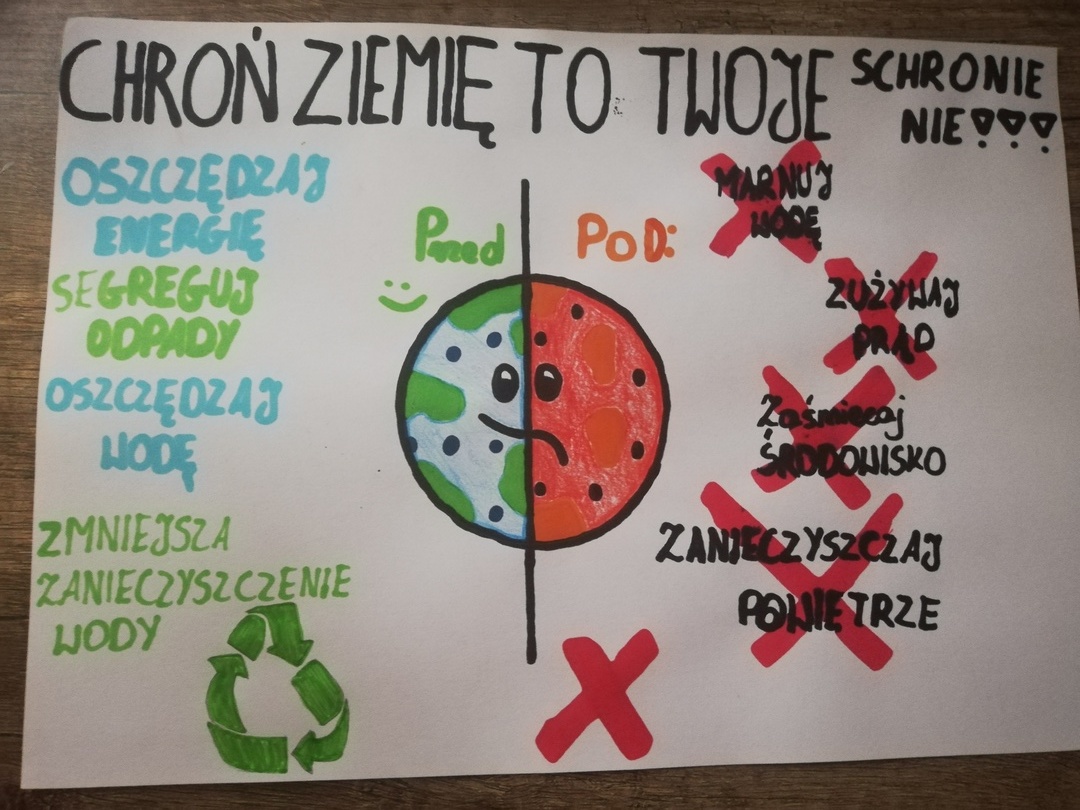 CHROŃ ZIEMIĘ TO TWOJE SCHRONIE
NIE!!!
OSZCZĘDZAJ
ENERGIĘ
SEGREGUJ
ODPADY
OSZCZĘDZAJ
WODĘ
ZMNIEJSZA
ZANIECZYSZCZENIE
WODY
Przed
POD:
MARNUJ
WODĘ
ZUŻYWAJ
PRĄD
Zaśmiecaj
ŚRODOWISKO
ZANIECZYSZCZAJ
POWIETRZE